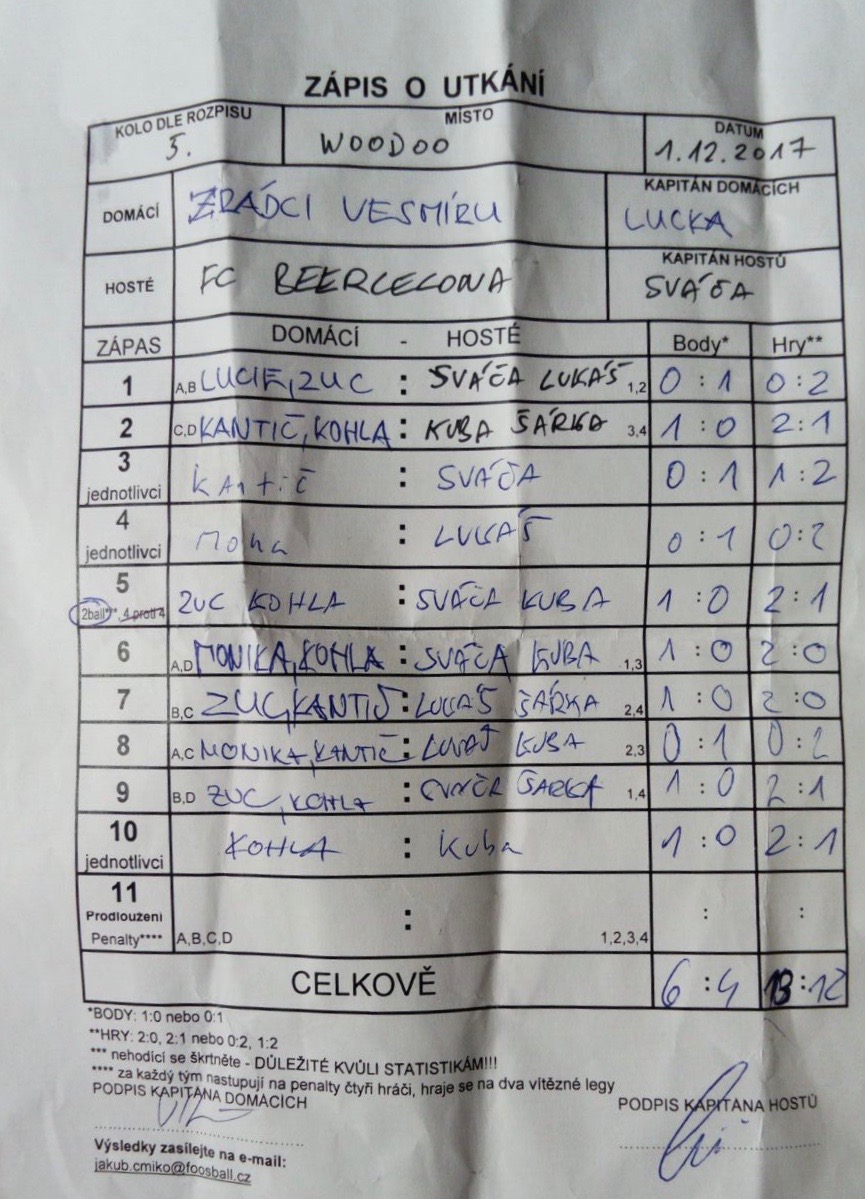 ZÁPIS O UTKÁNÍ
KOLO DLE ROZPISU MÍSTO DATUM
5. WOODOO 1.12.2017
DOMÁCÍ ZRÁDCI VESMÍRU KAPITÁN DOMÁCÍCH LUCKA
HOSTÉ FC BEERCELONA KAPITÁN HOSTŮ SVÁČA
ZÁPAS DOMÁCÍ - HOSTÉ Body* Hry**
1 A,B LUCIE, ZUC : SVÁČA LUKÁŠ 1,2 0:1 0:2
2 C,D KANTIČ, KOHLA : KUBA ŠÁRKA 3,4 1:0 2:1
3 jednotlivci Kantič : SVÁČA 0:1 1:2
4 jednotlivci Mona : LUKÁŠ 0:1 0:2
5 2ball***, 4 proti 4 ZUC KOHLA : SVÁČA KUBA 1:0 2:1
6 A,D MONIKA, KOHLA : SVÁČA KUBA 1,3 1:0 2:0
7 B,C ZUC, KANTIČ : LUKÁŠ ŠÁRKA 2,4 1:0 2:0
8 A,C MONIKA, KANTIČ : LUKÁŠ KUBA 2,3 0:1 0:2
9 B,D ZUC, KOHLA : SVÁČA ŠÁRKA 1,4 1:0 2:1
10 jednotlivci KOHLA : Kuba 1:0 2:1
11 Prodloužení Penalty**** A,B,C,D : 1,2,3,4 : :
CELKOVĚ 6:4 13:12
*BODY: 1:0 nebo 0:1
**HRY: 2:0, 2:1 nebo 0:2, 1:2
*** nehodící se škrtněte - DŮLEŽITÉ KVŮLI STATISTIKÁM!!!
**** za každý tým nastupují na penalty čtyři hráči, hraje se na dva vítězné legy
PODPIS KAPITÁNA DOMÁCÍCH PODPIS KAPITÁNA HOSTŮ
Výsledky zasílejte na e-mail:
jakub.cmiko@foosball.cz